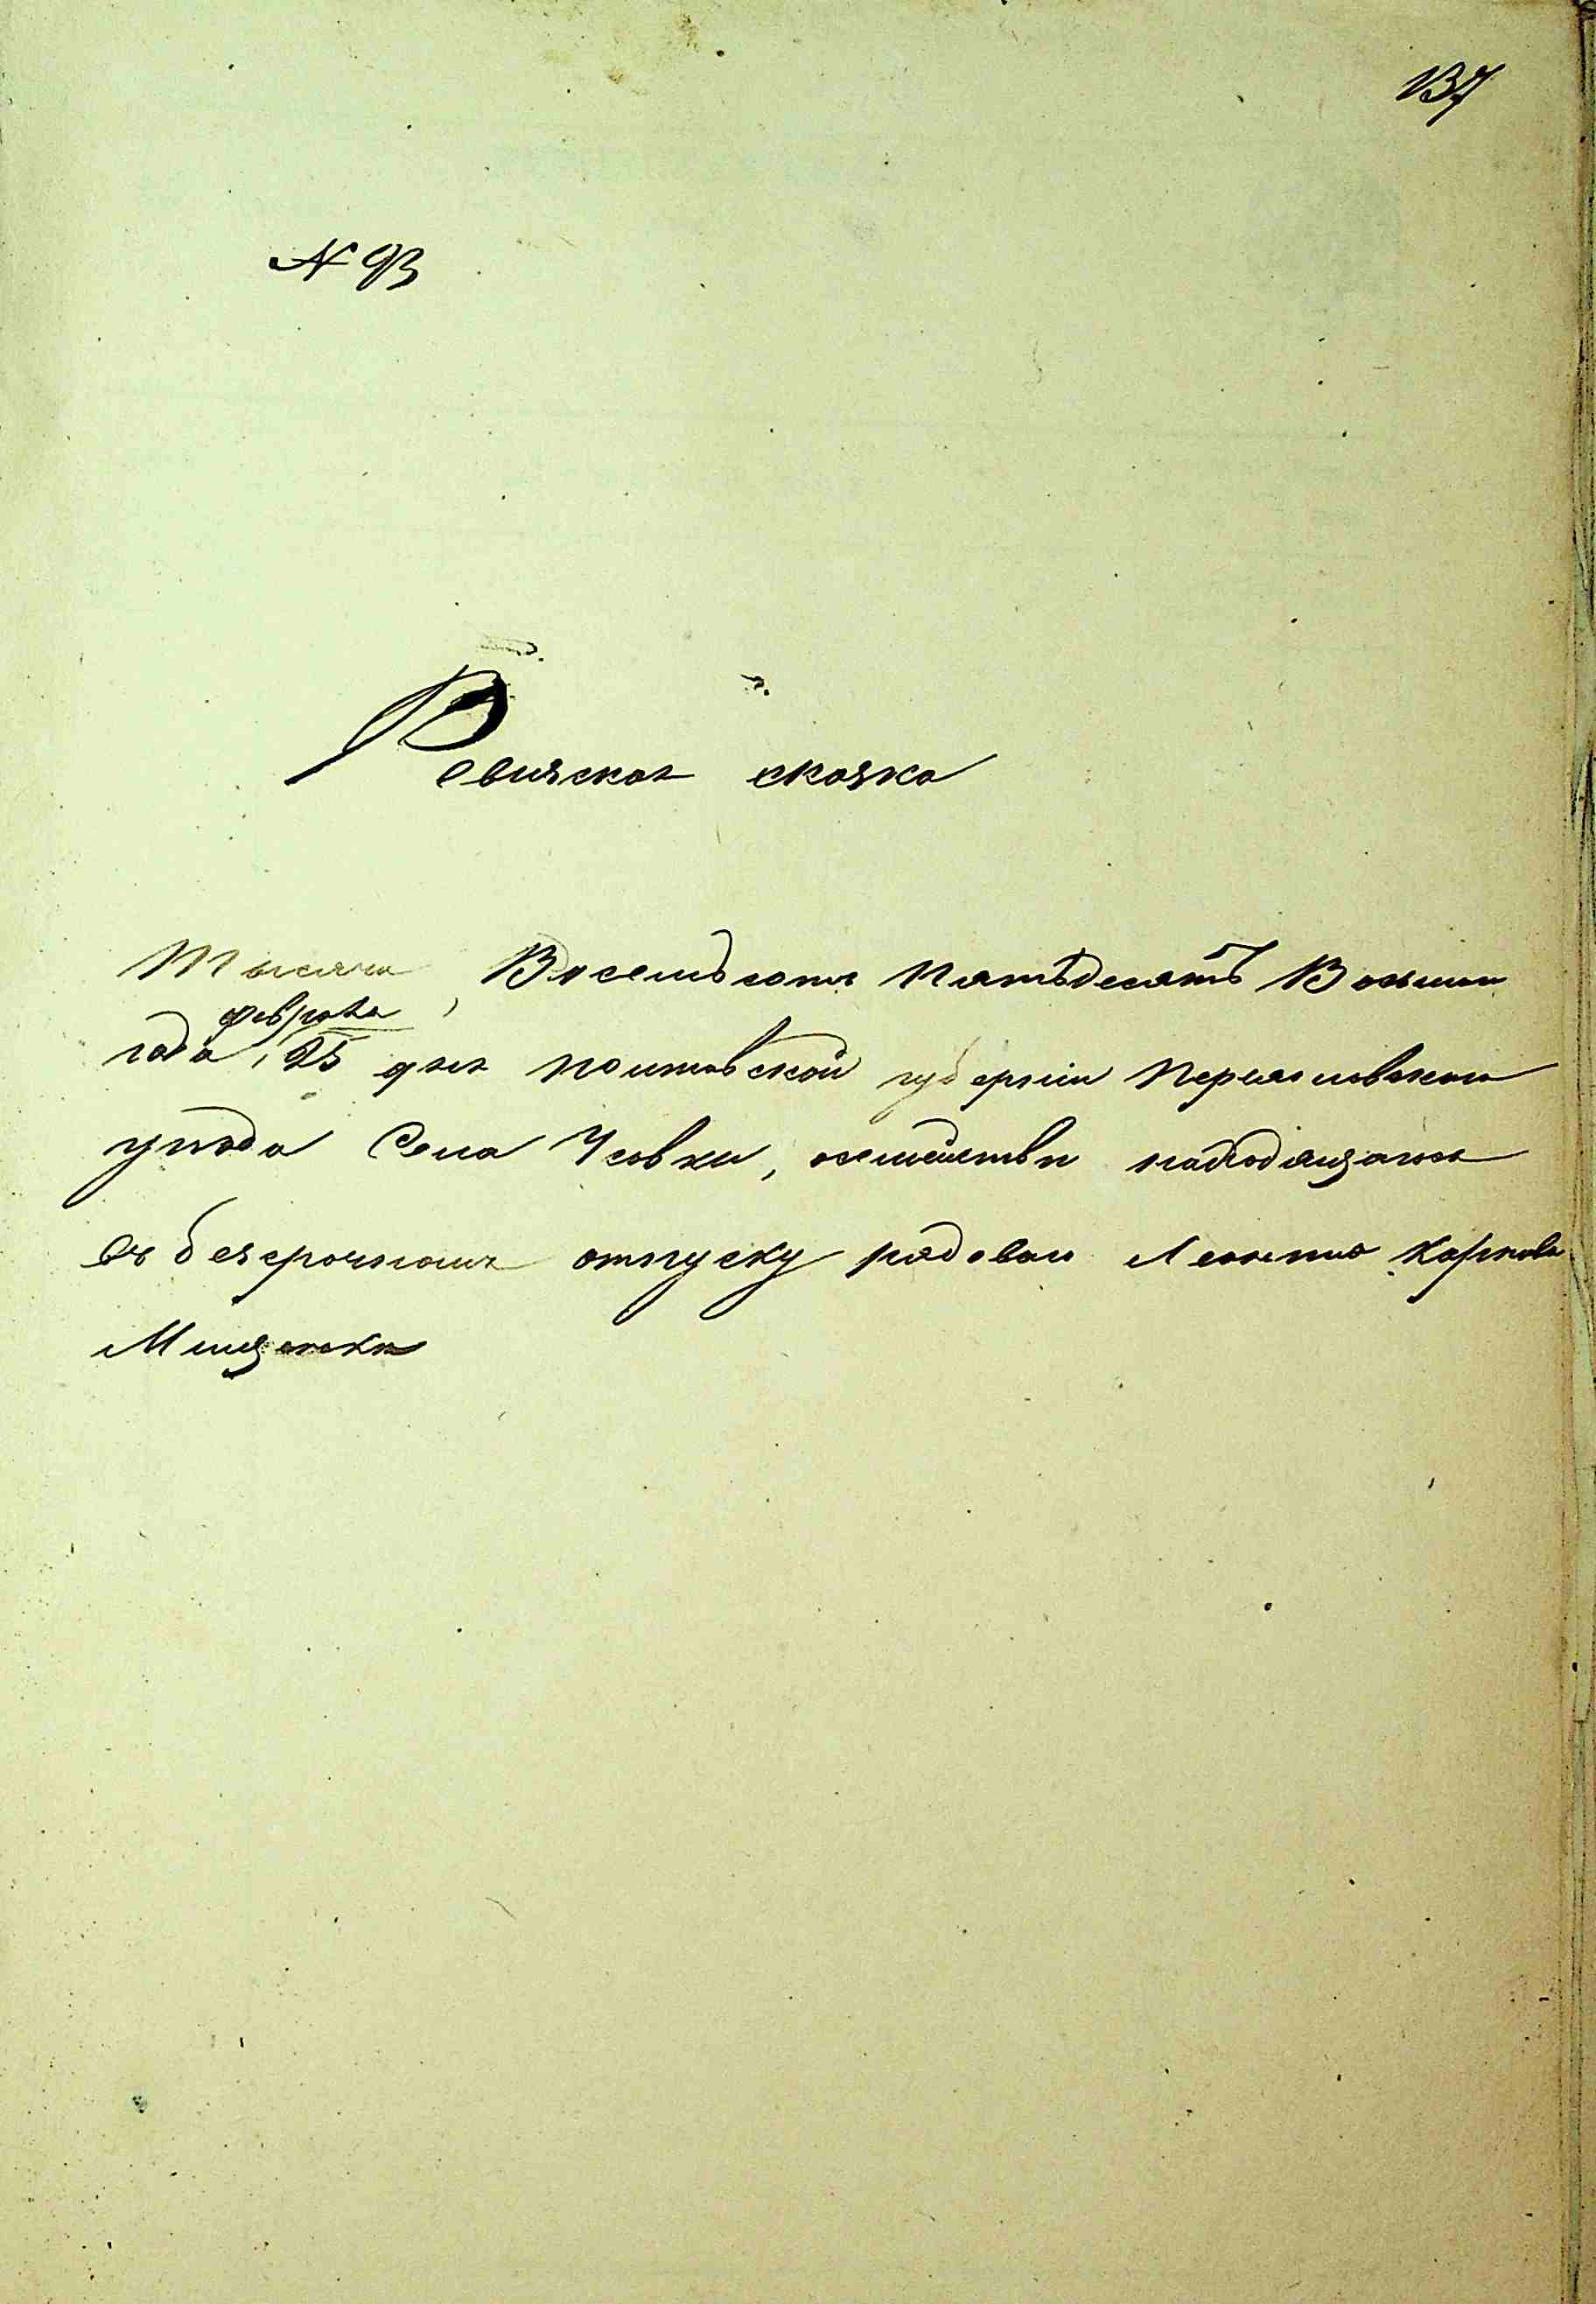 137
№ 93
Ревизская сказка
Тысяча Восемьсотъ Пятьдесятъ Восьмого
февраля
года, 25 дня Полтавской губерніи Переяславского
уезда Села Усовки, о семействе находящагося
въ безсрочномъ отпуску рядовом Леонтию Карпова
Мищенки